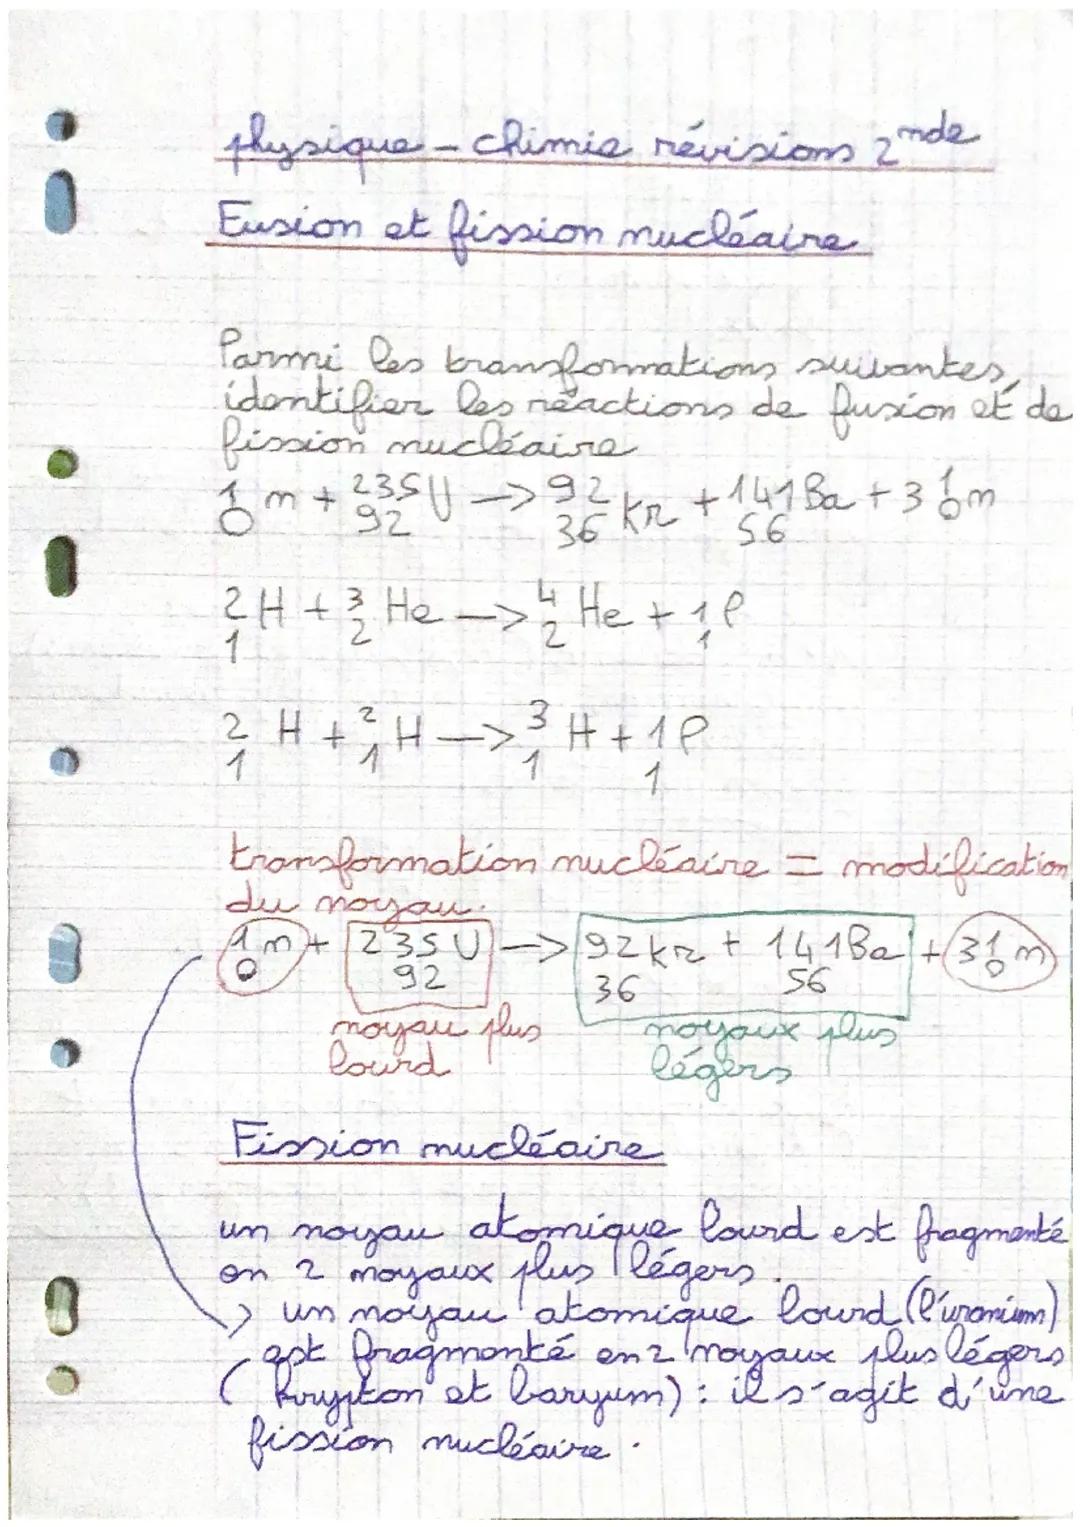 physique - chimie révisions 2nde
Fusion et fission nucléaire
Parmi les transformations suivantes,
identifier les réactions de fusion et de
fission nucléaire
¹₀n + ²³⁵₉₂U -> ⁹²₃₆Kr + ¹⁴¹₅₆Ba + 3 ¹₀n
²₁H + ³₂He -> ⁴₂He + ¹₁P
²₁H + ²₁H -> ³₁H + ¹₁P
transformation nucléaire = modification
du noyau.
¹₀n + ²³⁵₉₂U -> ⁹²₃₆Kr + ¹⁴¹₅₆Ba + 3 ¹₀n
noyau plus lourd
noyaux plus légers
Fission nucléaire
un noyau atomique lourd est fragmenté
en 2 noyaux plus légers.
-> un noyau atomique lourd (l'uranium)
est fragmenté en 2 noyaux plus légers
( krypton et baryum) : il s'agit d'une
fission nucléaire.